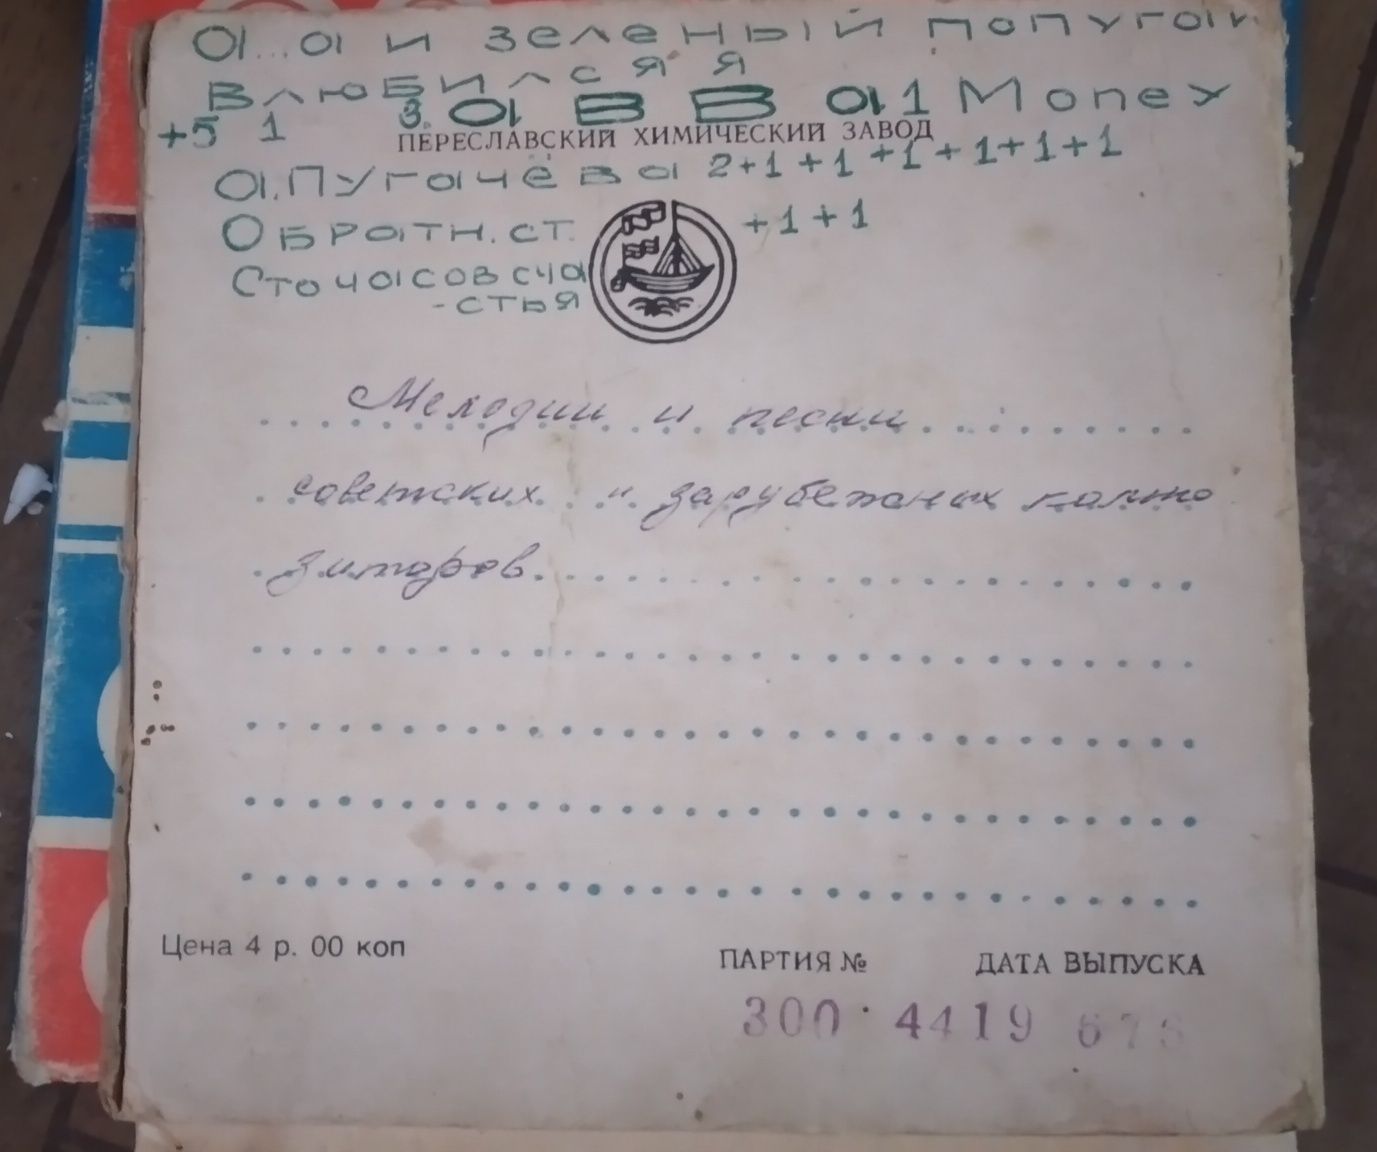 а...а и зеленый попугай
Влюбился я
+5 1 з. а В В а 1 Мопех
ПЕРЕСЛАВСКИЙ ХИМИЧЕСКИЙ ЗАВОД
а. Пугачёва 2+1+1+1+1+1+1
Обратн. ст. +1+1
Сто часов сча
-стья
Мелодии и песни
советских и зарубежных компо
зиторов.
Цена 4 р. 00 коп
ПАРТИЯ № ДАТА ВЫПУСКА
300 4419